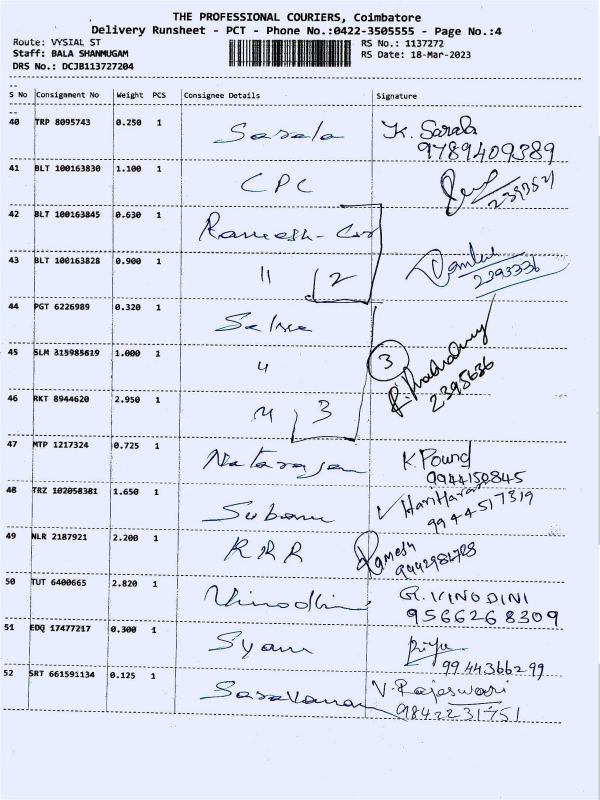 THE PROFESSIONAL COURIERS, Coimbatore
Delivery Runsheet - PCT - Phone No.:0422-3505555 - Page No.:4
Route: VYSIAL ST
Staff: BALA SHANMUGAM
DRS No.: DCJB113727204
RS No.: 1137272
RS Date: 18-Mar-2023
S No Consignment No Weight PCS Consignee Details Signature
40 TRP 8095743 0.250 1 Sarala K. Sarala
9789409389
41 BLT 100163830 1.100 1 CPC
2393521
42 BLT 100163845 0.630 1 Ramesh-
43 BLT 100163828 0.900 1 11 2
2393336
44 PGT 6226989 0.320 1
45 SLM 315985619 1.000 1 3
2395636
46 RKT 8944620 2.950 1 3
47 MTP 1217324 0.725 1 Natarajan
9944150845
48 TRZ 102058381 1.650 1 HariHaran
9944517319
49 NLR 2187921 2.200 1 RRR Ramesh
50 TUT 6400665 2.820 1 Vinodhini G. VINODINI
9566268309
51 EDQ 17477217 0.300 1 Syam Priya
9944366299
52 SRT 661591134 0.125 1 Saravanan V. Rajeswari
9842231751